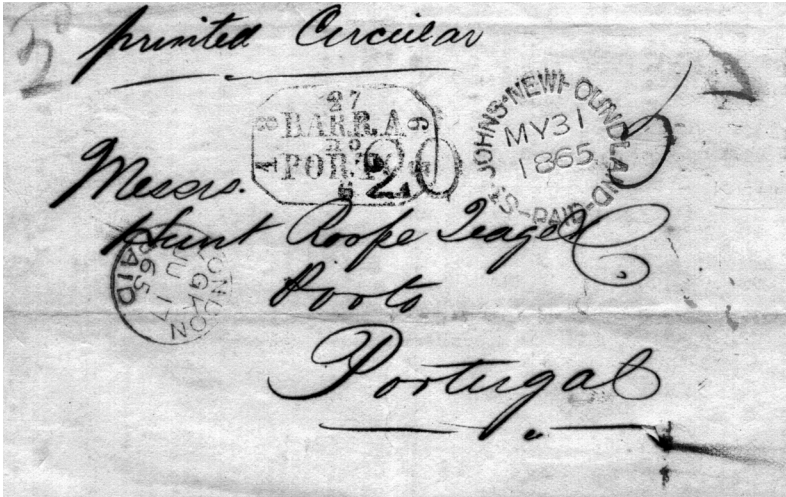 printed Circular
27
BARRA
DO
PORTO
1865
6
20
ST. JOHNS-NEWFOUNDLAND-
MY31
1865
-PAID-
Messrs.
Hunt Roope Teage & C
Porto
Portugal
LONDON
JU 17
65
PAID